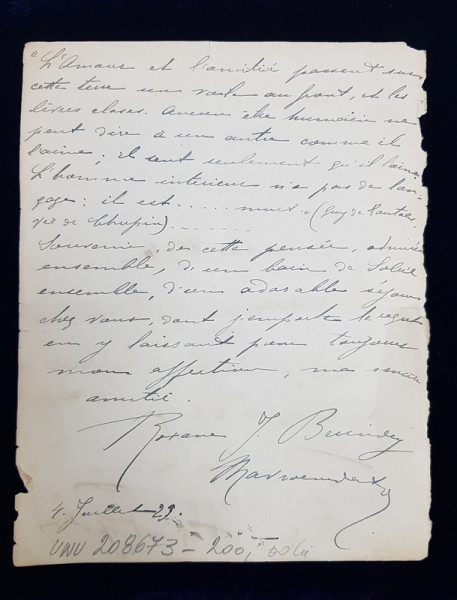 "L'Amour et l'amitié passent sur
cette terre un voile au front, et les
lèvres closes. Aucun être humain ne
peut dire à un autre comme il
l'aime; il sent seulement qu'il l'aime.
L'homme intérieur n'a pas de lan-
gage: il est .... muet." (Guy de Pourtalès,
vie de Chopin)......
Souvenir, de cette pensée, admirée
ensemble, d'un bain de Soleil
ensemble, d'un adorable séjour
chez vous, dont j'emporte le regret
en y laissant pour toujours
mon affection, ma
amitié.
Roxane J.
4. Juillet 29.
UNU 208673 - 200,-